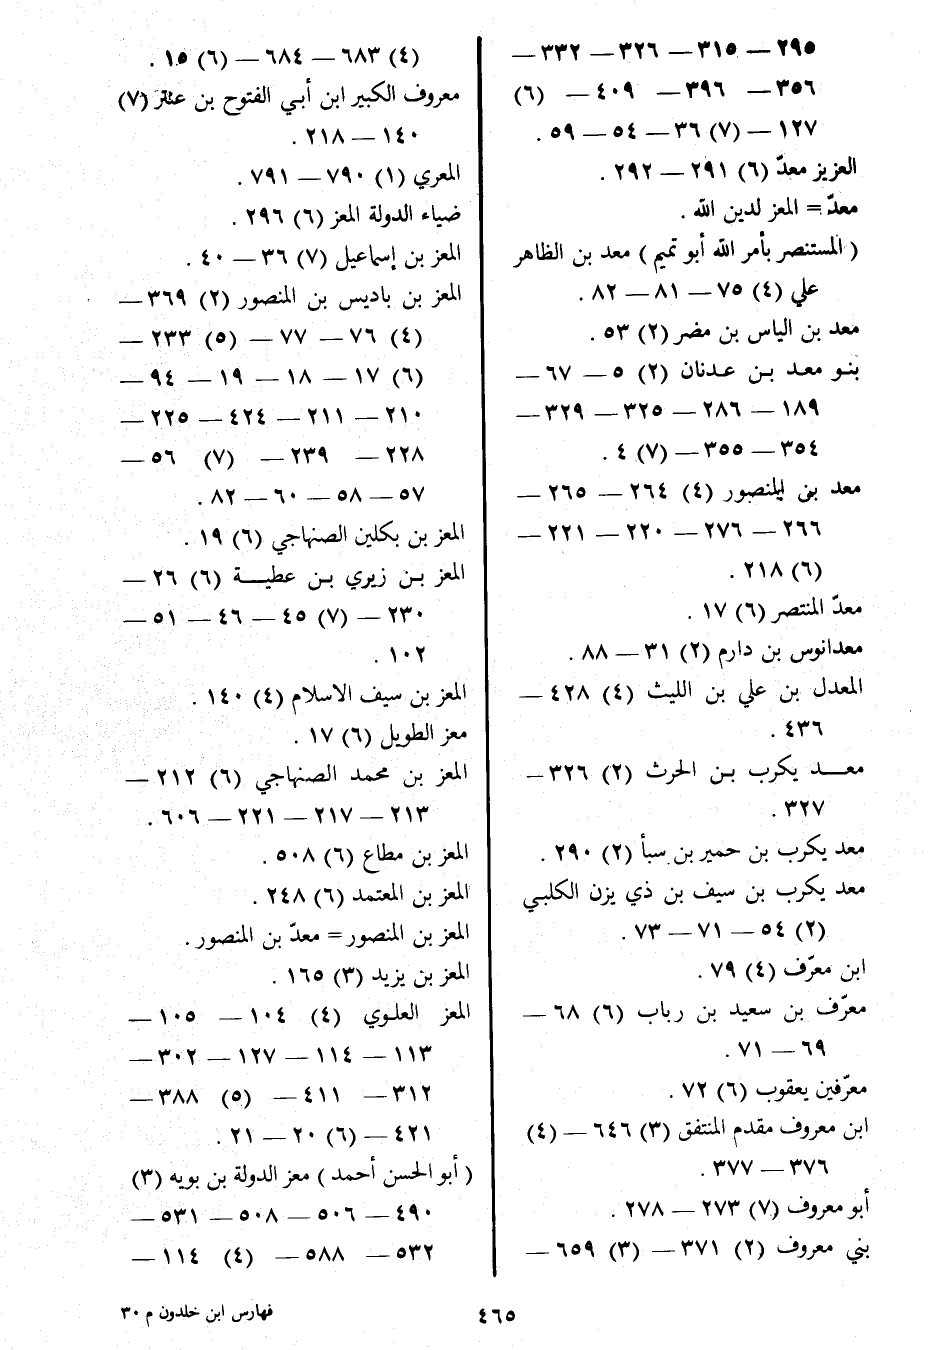 ٢٩٥ — ٣١٥ — ٣٢٦ — ٣٣٢ —
٣٥٦ — ٣٩٦ — ٤٠٩ — (٦)
١٢٧ — (٧) ٣٦ — ٥٤ — ٥٩ .
العزيز معدّ (٦) ٢٩١ — ٢٩٢ .
معدّ = المعز لدين الله .
( المستنصر بأمر الله أبو تميم ) معد بن الظاهر
علي (٤) ٧٥ — ٨١ — ٨٢ .
معد بن الياس بن مضر (٢) ٥٣ .
بنو معد بن عدنان (٢) ٥ — ٦٧ —
١٨٩ — ٢٨٦ — ٣٢٥ — ٣٢٩ —
٣٥٤ — ٣٥٥ — (٧) ٤ .
معد بن المنصور (٤) ٢٦٤ — ٢٦٥ —
٢٦٦ — ٢٧٦ — ٢٢٠ — ٢٢١ —
(٦) ٢١٨ .
معدّ المنتصر (٦) ١٧ .
معدانوس بن دارم (٢) ٣١ — ٨٨ .
المعدل بن علي بن الليث (٤) ٤٢٨ —
٤٣٦ .
معد يكرب بن الحرث (٢) ٣٢٦ —
٣٢٧ .
معد يكرب بن حمير بن سبأ (٢) ٢٩٠ .
معد يكرب بن سيف بن ذي يزن الكلبي
(٢) ٥٤ — ٧١ — ٧٣ .
ابن معرّف (٤) ٧٩ .
معرّف بن سعيد بن رباب (٦) ٦٨ —
٦٩ — ٧١ .
معرّفين يعقوب (٦) ٧٢ .
ابن معروف مقدم المنتفق (٣) ٦٤٦ — (٤)
٣٧٦ — ٣٧٧ .
أبو معروف (٧) ٢٧٣ — ٢٧٨ .
بني معروف (٢) ٣٧١ — (٣) ٦٥٩ —
(٤) ٦٨٣ — ٦٨٤ — (٦) ١٥ .
معروف الكبير ابن أبي الفتوح بن عنتر (٧)
١٤٠ — ٢١٨ .
المعري (١) ٧٩٠ — ٧٩١ .
ضياء الدولة المعز (٦) ٢٩٦ .
المعز بن إسماعيل (٧) ٣٦ — ٤٠ .
المعز بن باديس بن المنصور (٢) ٣٦٩ —
(٤) ٧٦ — ٧٧ — (٥) ٢٣٣ —
(٦) ١٧ — ١٨ — ١٩ — ٩٤ —
٢١٠ — ٢١١ — ٤٢٤ — ٢٢٥ —
٢٢٨ — ٢٣٩ — (٧) ٥٦ —
٥٧ — ٥٨ — ٦٠ — ٨٢ .
المعز بن بكلين الصنهاجي (٦) ١٩ .
المعز بن زيري بن عطية (٦) ٢٦ —
٢٣٠ — (٧) ٤٥ — ٤٦ — ٥١ —
١٠٢ .
المعز بن سيف الاسلام (٤) ١٤٠ .
معز الطويل (٦) ١٧ .
المعز بن محمد الصنهاجي (٦) ٢١٢ —
٢١٣ — ٢١٧ — ٢٢١ — ٦٠٦ .
المعز بن مطاع (٦) ٥٠٨ .
المعز بن المعتمد (٦) ٢٤٨ .
المعز بن المنصور = معدّ بن المنصور .
المعز بن يزيد (٣) ١٦٥ .
المعز العلوي (٤) ١٠٤ — ١٠٥ —
١١٣ — ١١٤ — ١٢٧ — ٣٠٢ —
٣١٢ — ٤١١ — (٥) ٣٨٨ —
٤٢١ — (٦) ٢٠ — ٢١ .
( أبو الحسن أحمد ) معز الدولة بن بويه (٣)
٤٩٠ — ٥٠٦ — ٥٠٨ — ٥٣١ —
٥٣٢ — ٥٨٨ — (٤) ١١٤ —
٤٦٥
فهارس ابن خلدون م ٣٠